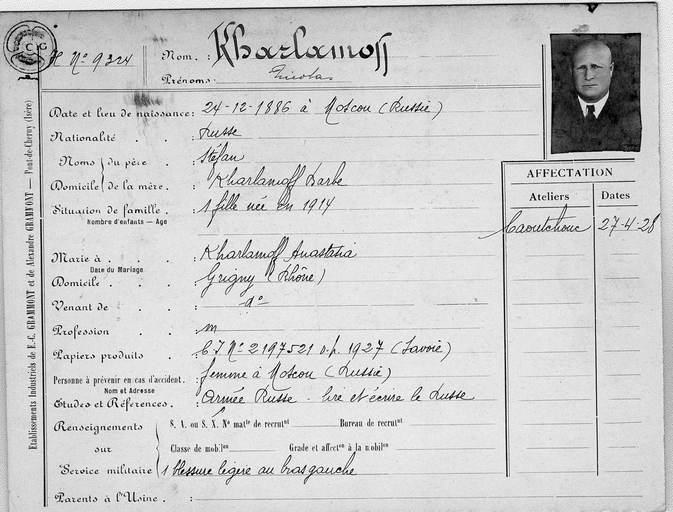 C G
H Nº 9324
Nom. : Kharlamoff
Prénoms: Nicolas
Date et lieu de naissance: 24-12-1886 à Moscou (Russie)
Nationalité . . : Russe
Noms du père . : Stéfan
Domicile de la mère. : Kharlamoff Barbe
Situation de famille . : 1 fille née en 1914
Nombre d'enfants — Age
Marié à . . . : Kharlamoff Anastasia
Date du Mariage
Domicile . . . : Grigny (Rhône)
Venant de . . : dº
Profession . . : m
Papiers produits . : C I Nº 2197521 v.p. 1927 (Savoie)
Personne à prévenir en cas d'accident. : femme à Moscou (Russie)
Nom et Adresse
Etudes et Réferences. : Armée Russe - lire et écrire le Russe
Renseignements S. A. ou S. X. Nº matle de recrutnt Bureau de recrutnt
sur Classe de mobilon Grade et affecton à la mobilon
Service militaire 1 blessure légère au bras gauche
Parents à l'Usine. :
AFFECTATION
Ateliers Dates
Caoutchouc 27-4-28
Etablissements Industriels de E.-C. GRAMMONT et de Alexandre GRAMMONT — Pont-de-Cheruy (Isère)